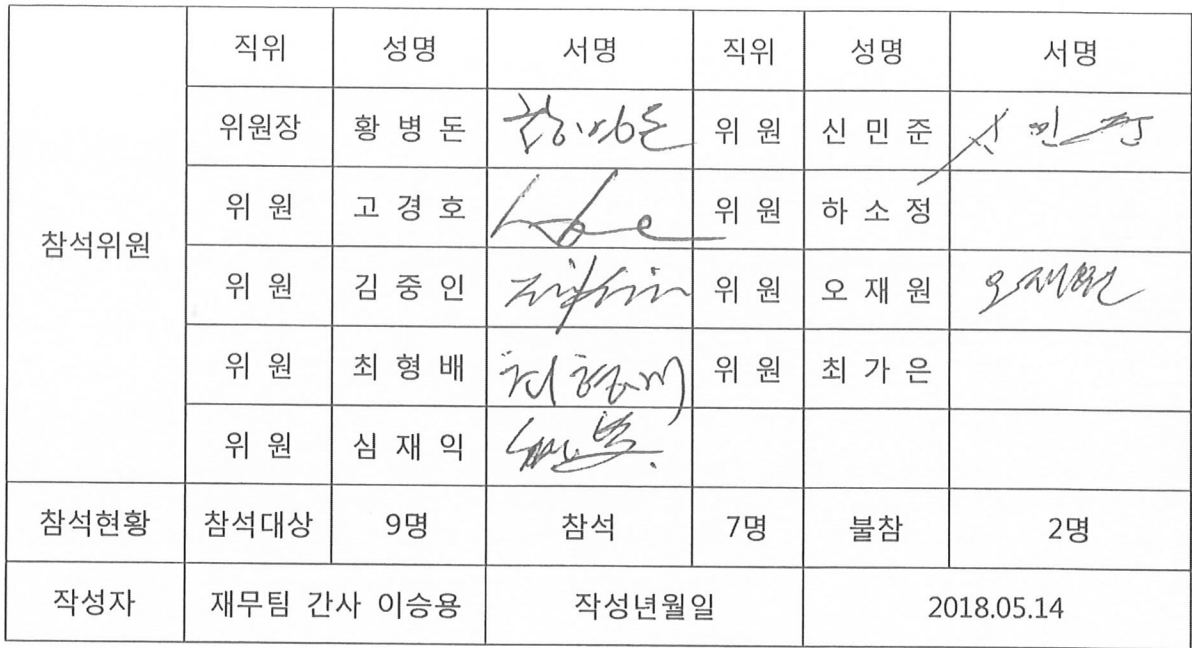 직위 성명 서명 직위 성명 서명
위원장 황 병 돈 황병돈 위 원 신 민 준 신민준
위 원 고 경 호 위 원 하 소 정
참석위원
위 원 김 중 인 위 원 오 재 원 오재원
위 원 최 형 배 최형배 위 원 최 가 은
위 원 심 재 익
참석현황 참석대상 9명 참석 7명 불참 2명
작성자 재무팀 간사 이승용 작성년월일 2018.05.14